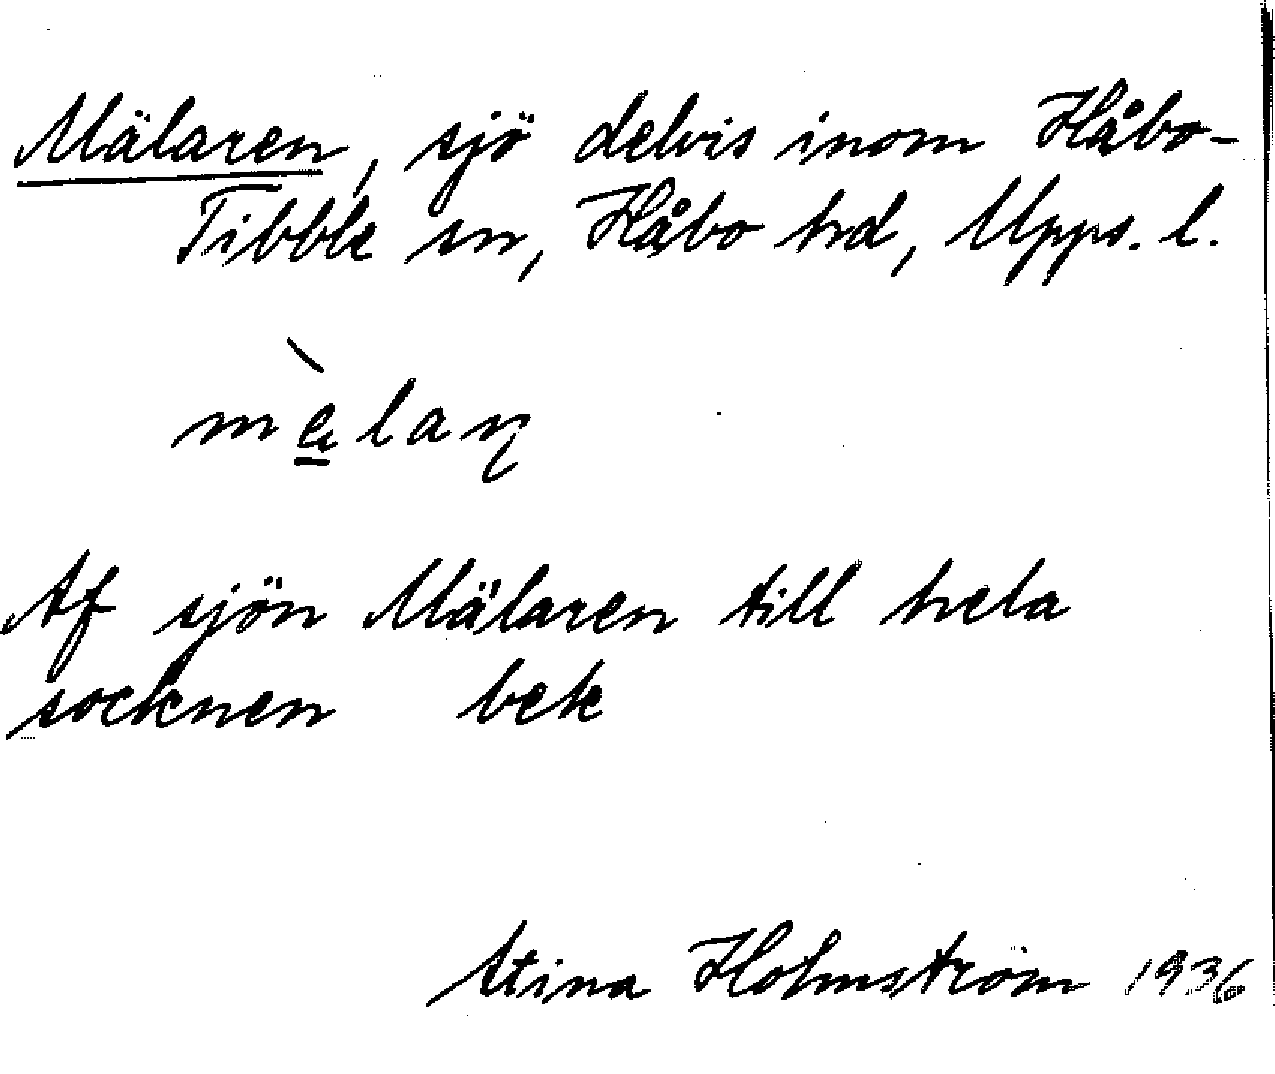 Mälaren, sjö delvis inom Håbo-
Tibble sn, Håbo hd, Upps. l.
Af sjön Mälaren till hela
socknen bek
Stina Holmström 1936